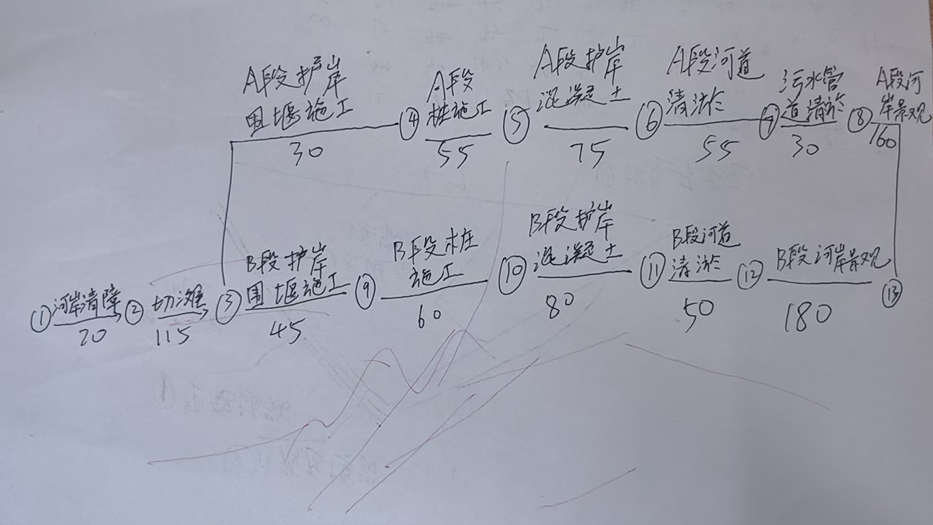 A段护岸
围堰施工
30
④
A段
桩施工
55
⑤
A段护岸
混凝土
75
⑥
A段河道
清淤
55
⑦
污水管
道清淤
30
⑧
A段河
岸景观
160
①
河岸清障
20
②
切滩
115
③
B段护岸
围堰施工
45
⑨
B段桩
施工
60
⑩
B段护岸
混凝土
80
⑪
B段河道
清淤
50
⑫
B段河岸景观
180
⑬